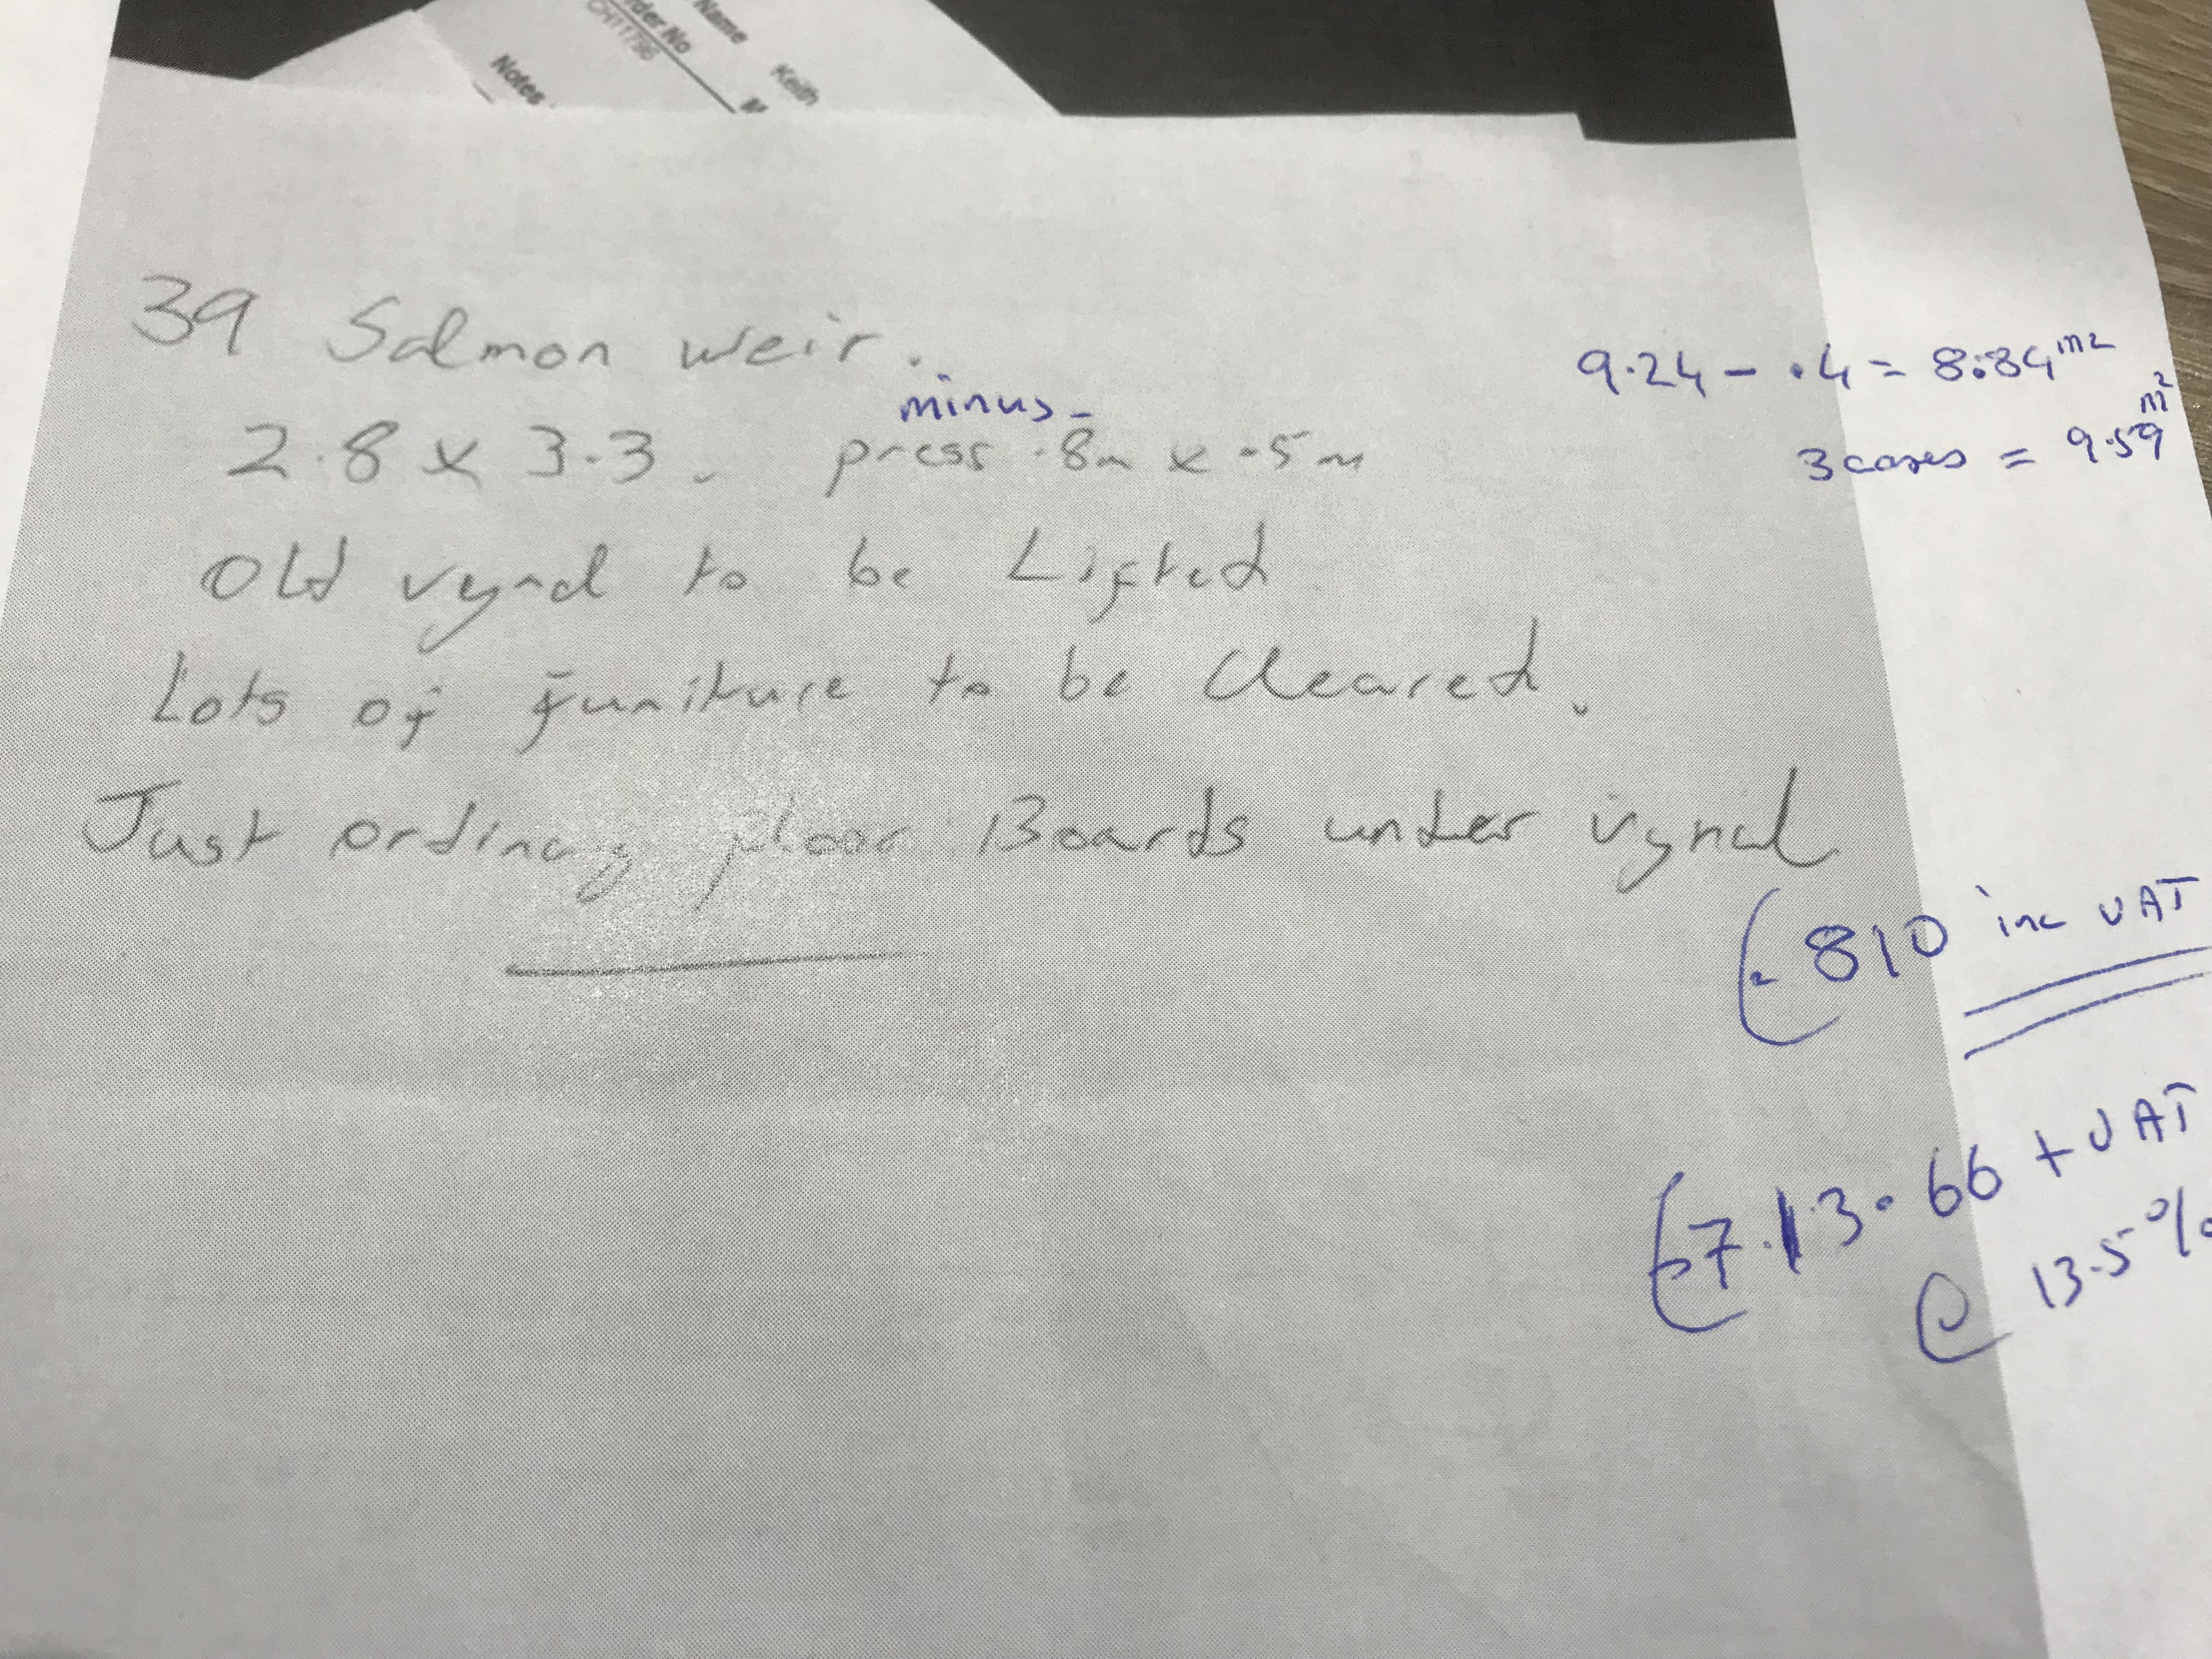 Name Keith
der No
CH11796
M
Notes
39 Salmon weir.
9.24 - .4 = 8.84 m2
minus -
2.8 x 3.3. press .8m x .5m
3 cases = 9.59 m2
Old vynal to be Lifted
Lots of funiture to be Cleared.
Just ordinary floor Boards under vynal
€810 inc VAT
€713.66 + VAT
@ 13.5%